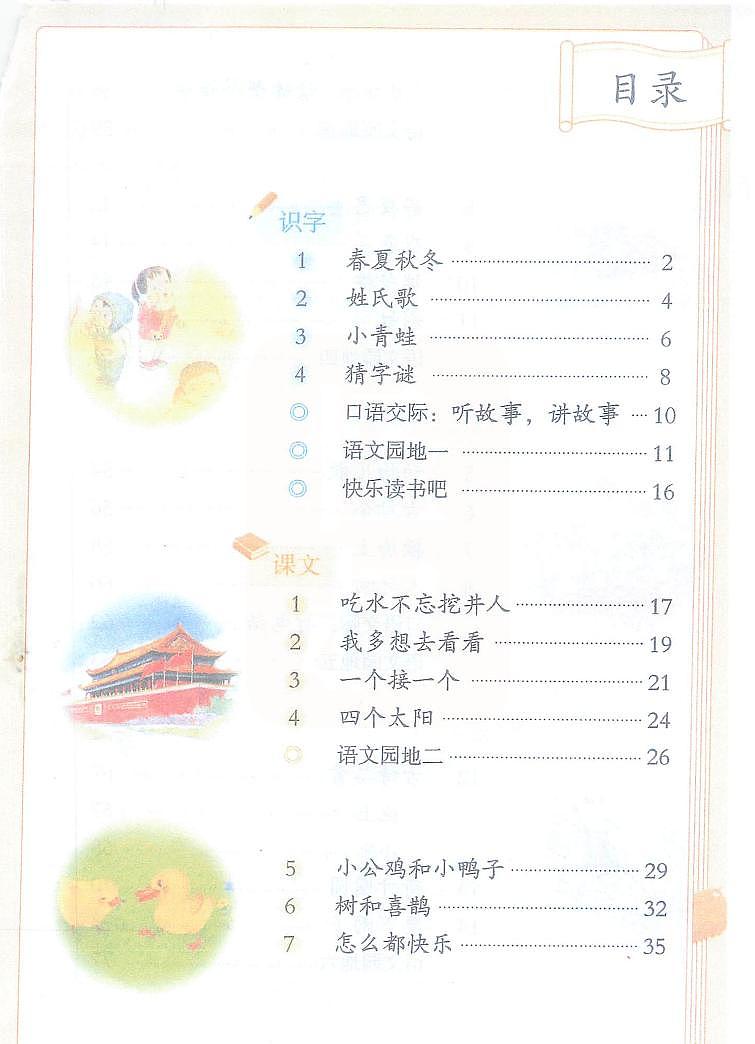 目录
识字
1 春夏秋冬 2
2 姓氏歌 4
3 小青蛙 6
4 猜字谜 8
◎ 口语交际：听故事，讲故事 10
◎ 语文园地一 11
◎ 快乐读书吧 16
课文
1 吃水不忘挖井人 17
2 我多想去看看 19
3 一个接一个 21
4 四个太阳 24
◎ 语文园地二 26
5 小公鸡和小鸭子 29
6 树和喜鹊 32
7 怎么都快乐 35